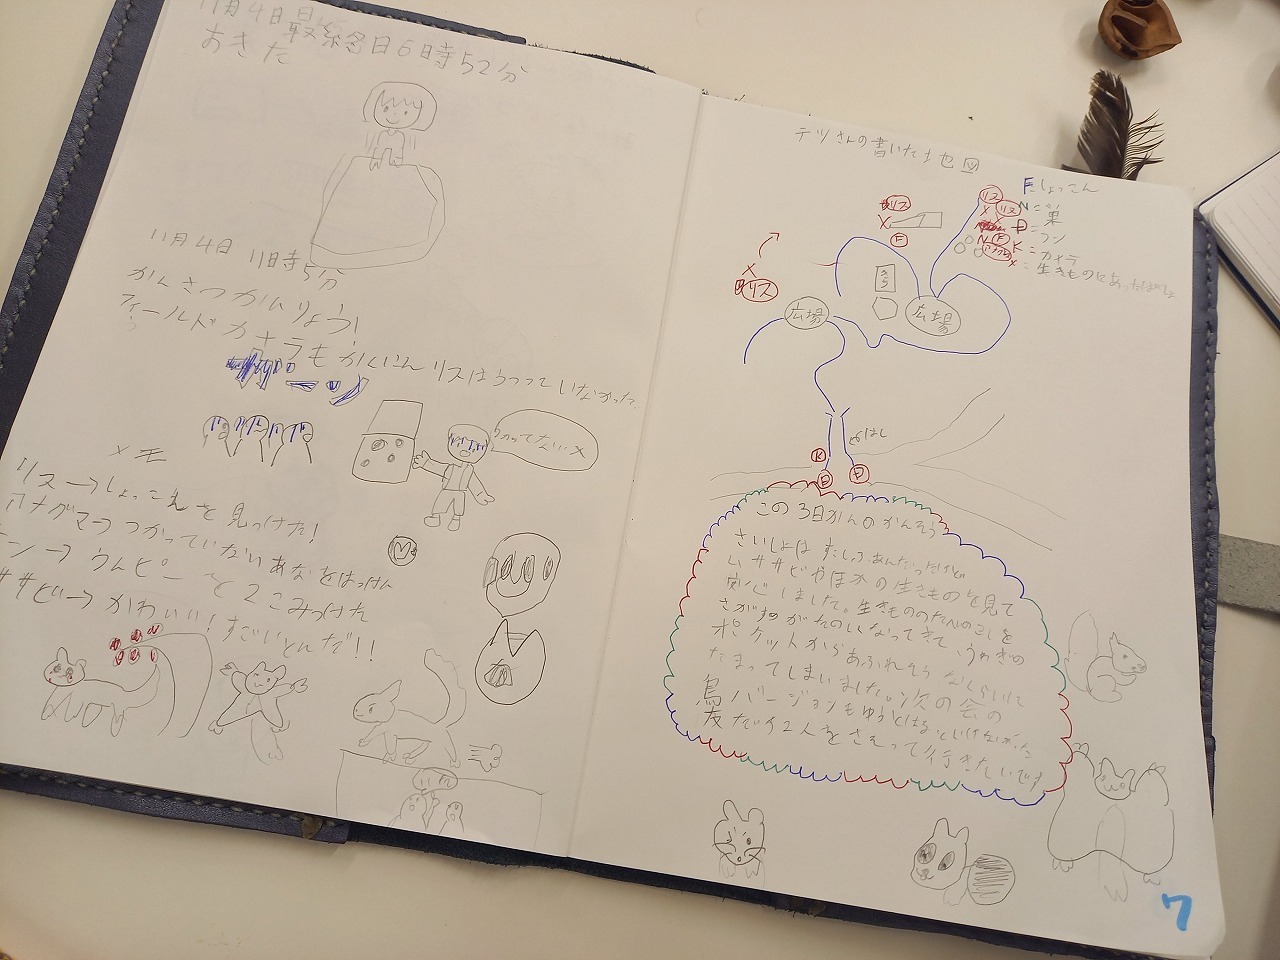 11月4日最終日6時52分
おきた
11月4日 11時5分
かんさつかんりょう!
フィールドカメラもかくにん リスはうつっていなかった
うつってない…×
メモ
リス→しょっこんを見つけた!
アナグマ→つかっていないあなをはっけん
テン→うんピーを2こみつけた
ムササビ→かわいい!すごいとんだ!!
テツさんの書いた地図
F=しょっこん
N=巣
P=フン
K=カメラ
X=生きものにあったばしょ
リス
リス
リス
X
F
X
リス
N F
広場
広場
はし
K
P
この3日かんのかんそう
さいしょはすこしふあんだったけど
ムササビやほかの生きものを見て
安心しました。生きもののたべのこしを
さがすのがたのしくなってきて、うわぎの
ポケットからあふれそうなくらいに
たまってしまいました。次の会の
鳥バージョンも
友だち2人をさそって行きたいです
7